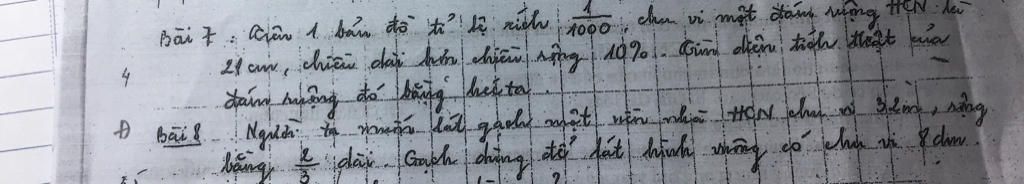 Bài 7 : Trên 1 bản đồ tỉ lệ xích 1/1000, chu vi một đám ruộng HCN là
21 cm, chiều dài hơn chiều rộng 10%. Tìm diện tích thật của
4
đám ruộng đó bằng hecta.
Bài 8 Người ta muốn lát gạch một nền nhà HCN chu vi 32m, rộng
bằng 2/3 dài. Gạch dùng để lát hình vuông có chu vi 8dm.